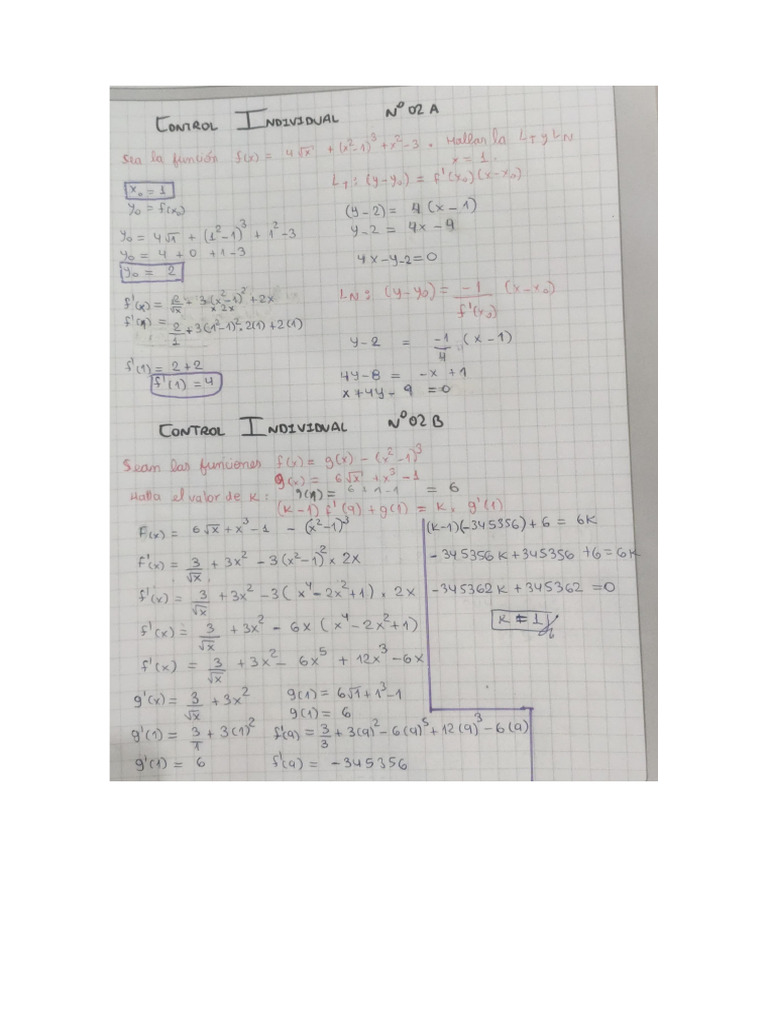 CONTROL INDIVIDUAL Nº 02 A
Sea la función f(x) = 4√x + (x²-1)³ + x² - 3 . Hallar la L_T y L_N
x = 1.
L_T : (y-y₀) = f'(x₀)(x-x₀)
x₀ = 1
y₀ = f(x₀)
y₀ = 4√1 + (1²-1)³ + 1² - 3
y₀ = 4 + 0 + 1 - 3
y₀ = 2
f'(x) = 2/√x + 3(x²-1)² + 2x
x 2x
f'(1) = 2/1 + 3(1²-1)².2(1) + 2(1)
f'(1) = 2 + 2
f'(1) = 4
(y-2) = 4(x-1)
y-2 = 4x - 4
4x - y - 2 = 0
L_N : (y-y₀) = -1/f'(x₀) (x-x₀)
y-2 = -1/4 . (x-1)
4y - 8 = -x + 1
x + 4y - 9 = 0
CONTROL INDIVIDUAL Nº 02 B
Sean las funciones f(x) = g(x) - (x²-1)³
g(x) = 6√x + x³ - 1
Halla el valor de k : g(1) = 6 + 1 - 1 = 6
(k-1) f'(9) + g(1) = k, g'(1)
F(x) = 6√x + x³ - 1 - (x²-1)³
F'(x) = 3/√x + 3x² - 3(x²-1)² x 2x
f'(x) = 3/√x + 3x² - 3(x⁴ - 2x² + 1) . 2x
f'(x) = 3/√x + 3x² - 6x (x⁴ - 2x² + 1)
f'(x) = 3/√x + 3x² - 6x⁵ + 12x³ - 6x
g'(x) = 3/√x + 3x²
g'(1) = 3/1 + 3(1)²
g'(1) = 6
g(1) = 6√1 + 1³ - 1
g(1) = 6
f'(9) = 3/3 + 3(9)² - 6(9)⁵ + 12(9)³ - 6(9)
f'(9) = -345356
(k-1)(-345356) + 6 = 6k
-345356k + 345356 + 6 = 6k
-345362k + 345362 = 0
k = 1